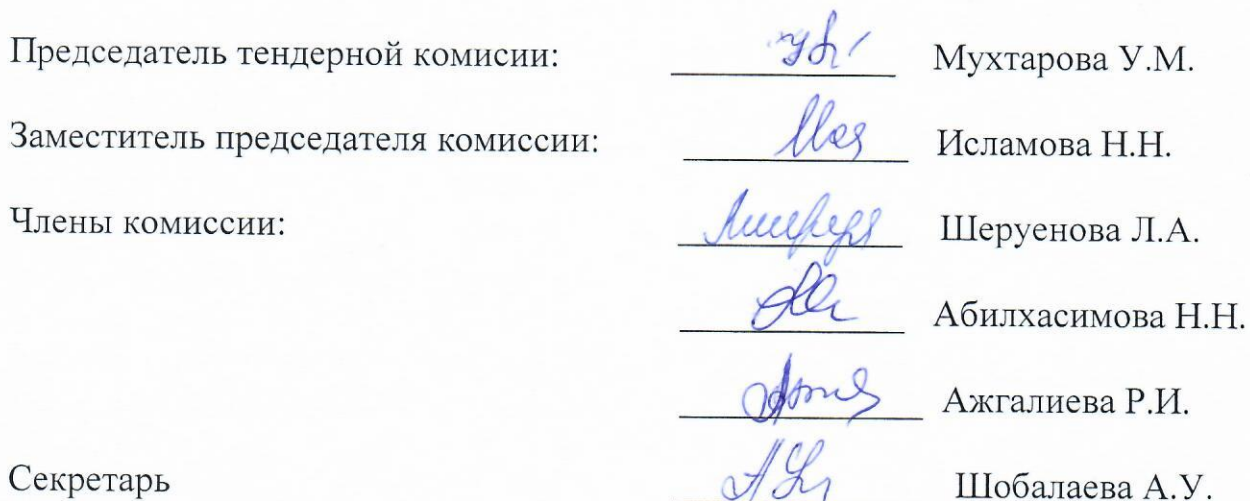 Председатель тендерной комисии: Мухтарова У.М.
Заместитель председателя комиссии: Исламова Н.Н.
Члены комиссии: Шеруенова Л.А.
Абилхасимова Н.Н.
Ажгалиева Р.И.
Секретарь Шобалаева А.У.